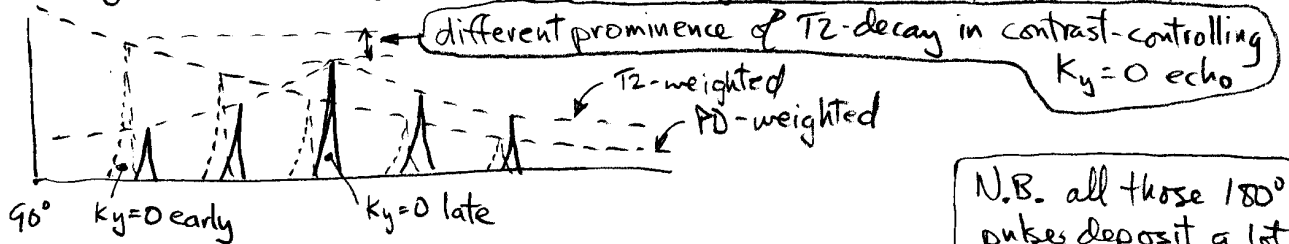 different prominence of T2-decay in contrast-controlling
Ky=0 echo
T2-weighted
PD-weighted
90° Ky=0 early Ky=0 late
N.B. all those 180°
pulses deposit a lot